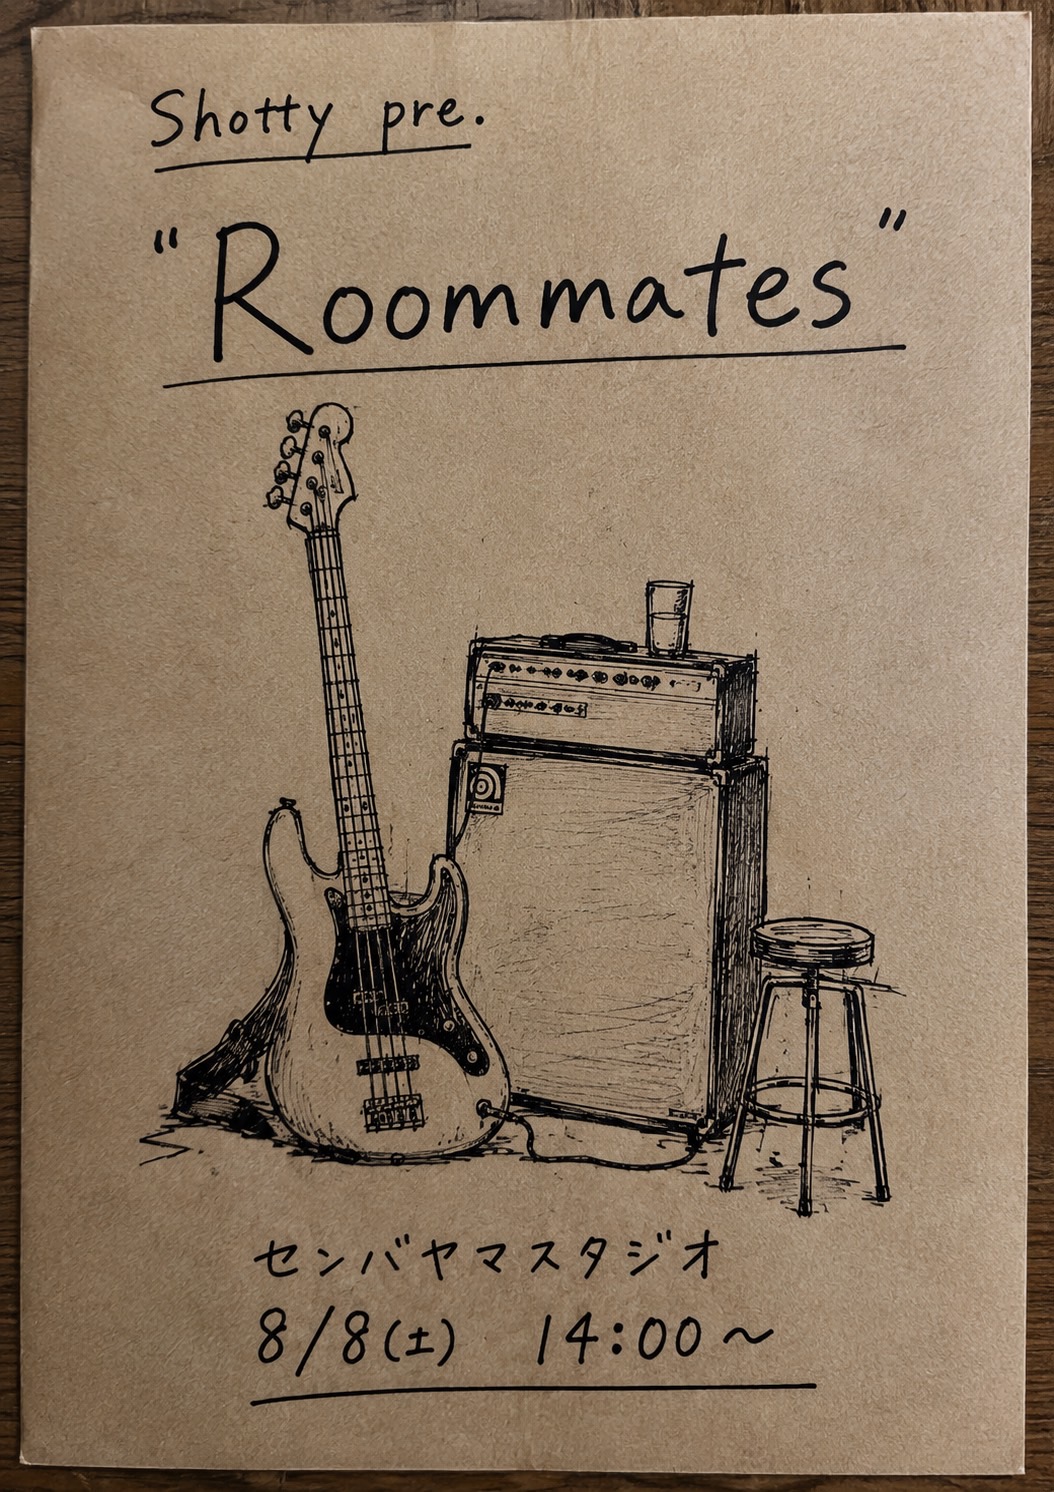 Shotty pre.
"Roommates"
センバヤマスタジオ
8/8(土) 14:00～